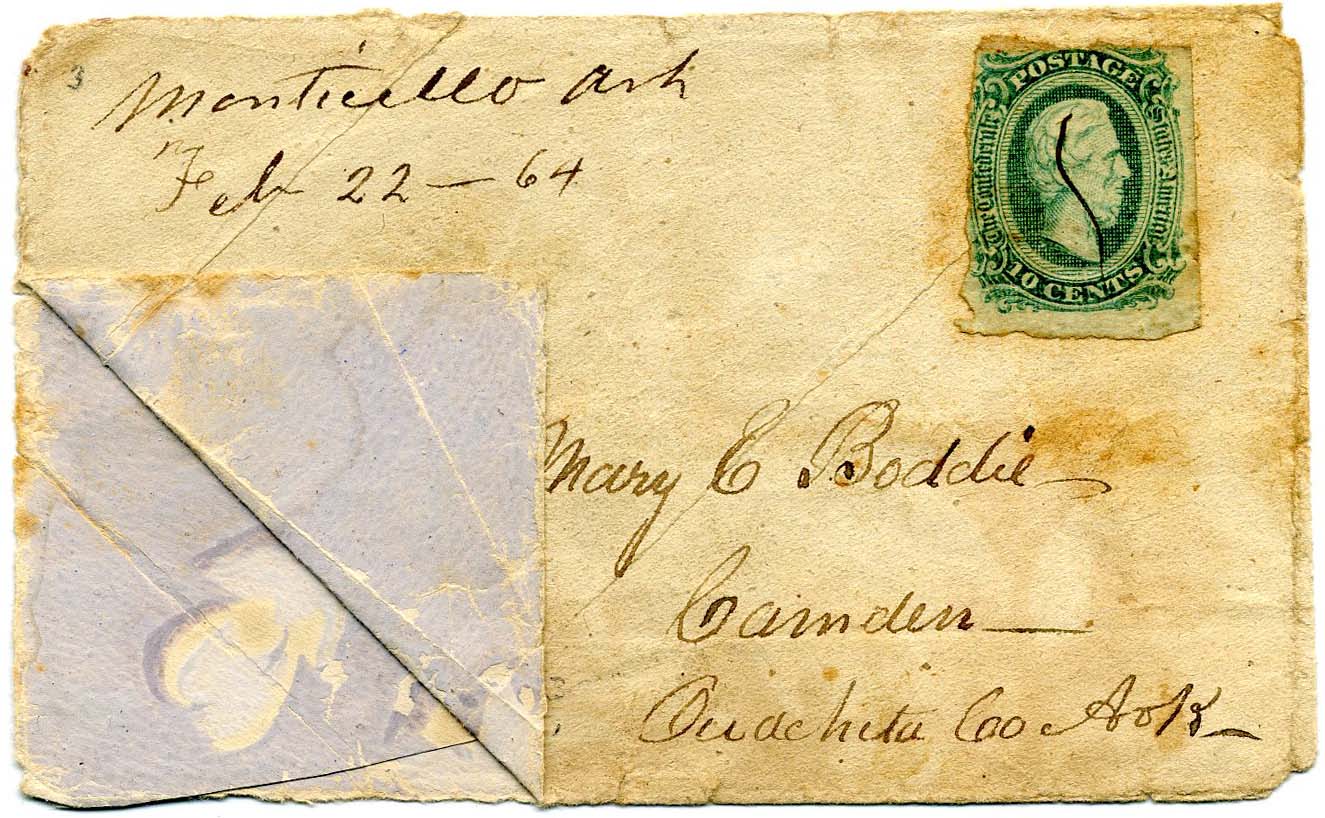 3
Monticello Ark
Feb 22 — 64
POSTAGE
The Confederate States of America
10 CENTS
Mary E Boddie
Camden
Ouachita Co Ark